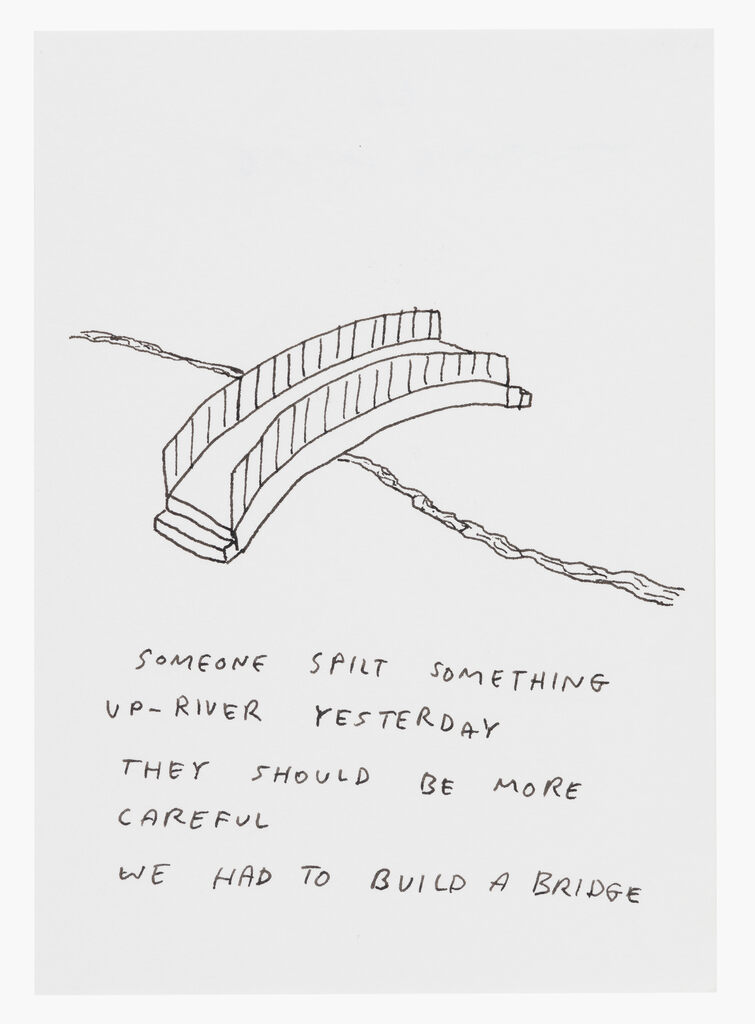 SOMEONE SPILT SOMETHING
UP-RIVER YESTERDAY
THEY SHOULD BE MORE
CAREFUL
WE HAD TO BUILD A BRIDGE